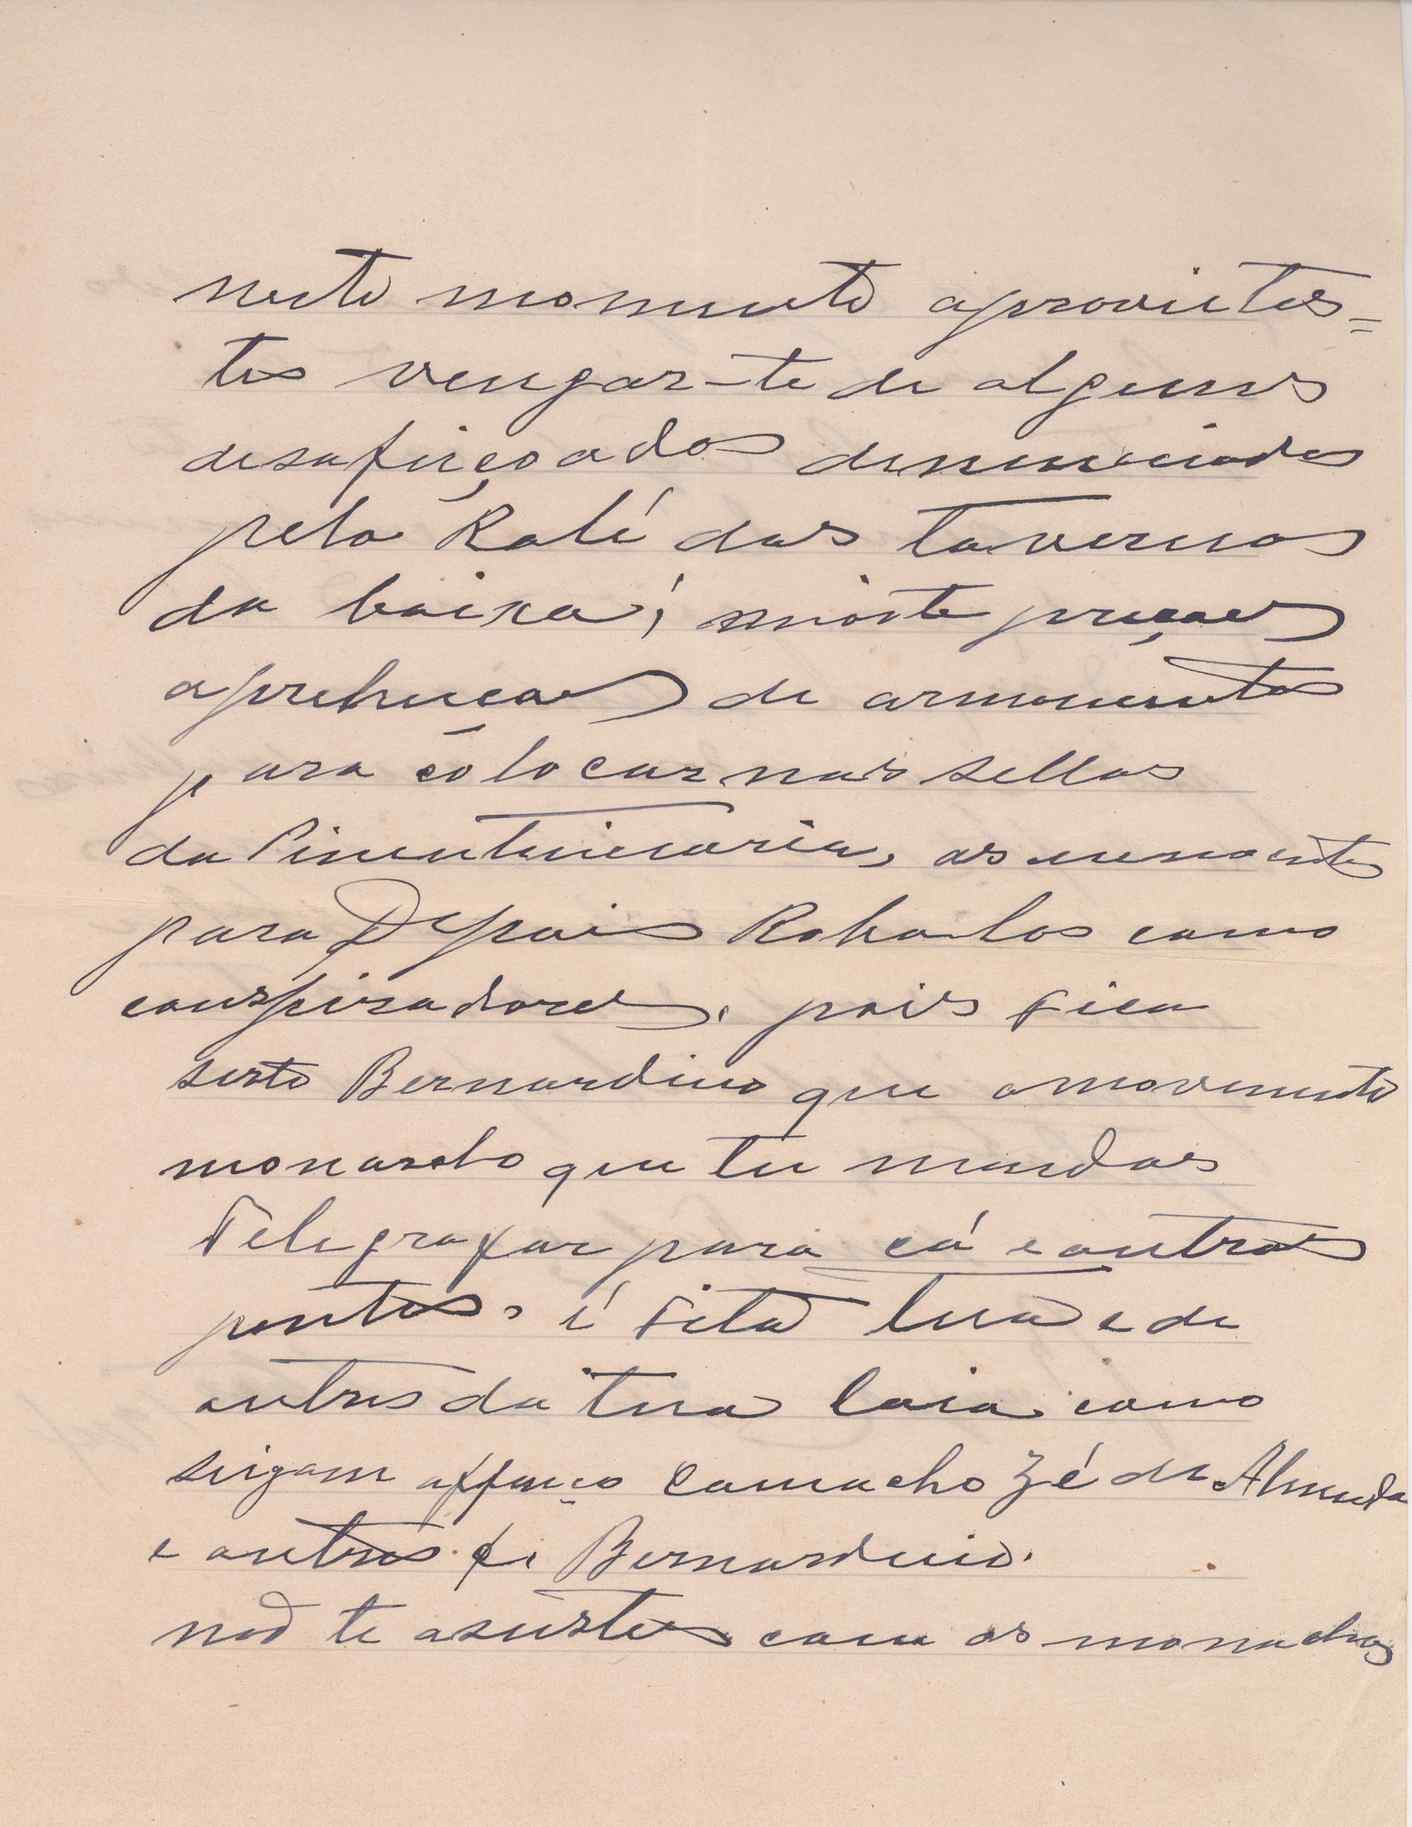 neste momento aproveites=
tes vengar-te de alguns
desafeiçoados denunciados
pela Ralé das tavernas
da baixa;
aprehenções de armamentos
para colocar nas sellas
da Pinintinciaria, as
para Depois Robalos como
conspiradores. pois fica
serto Bernardino que o movimento
monarcho que tu mandas
Telegrafar para cá e outros
pontos. é fita tua e de
outros da tua laia como
sigam affonço Camacho Zé de Almeida
e outros. Bernardino.
não te asustes com os monachos